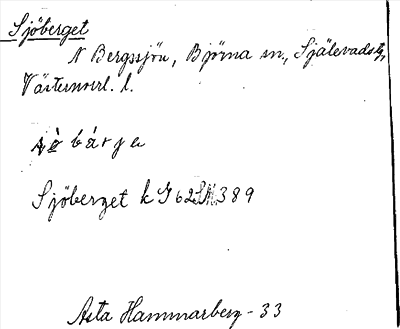 Sjöberget
N Bergssjön, Björna sn, Själevads tg,
Västernorrl. l.
bárje
Sjöberget k G 62 389
Asta Hammarberg - 33